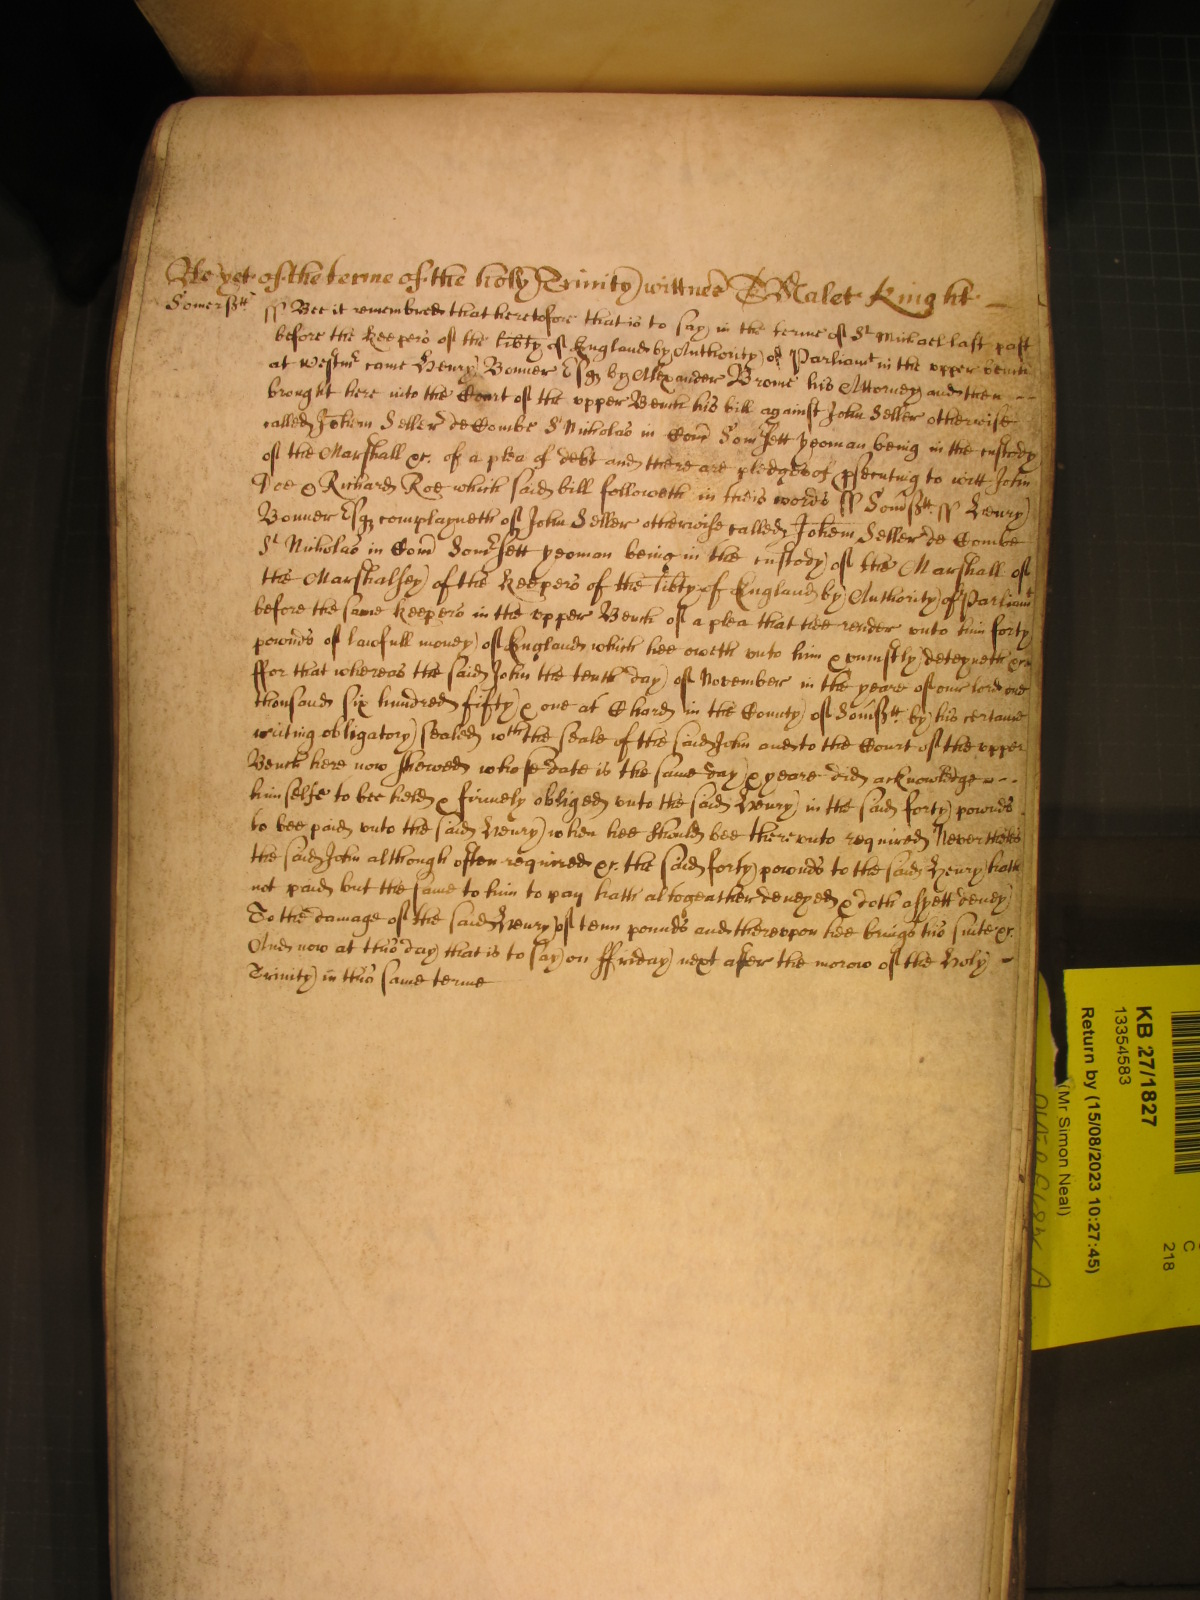 As yet of the terme of the holy Trinity wittnes T Malet Knight
Somersett
ss Bee it remembred that heretofore that is to say in the terme of St Michael last past
before the Keepers of the libty of England by Authority of Parliamt in the upper bench
at Westmr came Henry Bonner Esqr by Alexander Brome his Attorney and then
brought here into the Court of the upper Bench his bill against John Seller otherwise
called Johem Seller de Combe St Nicholas in Com Somsett yeoman being in the custody
of the Marshall &c. of a plea of debt and there are pledges of psecuting to witt John
Doe & Richard Roe which said bill followeth in theis words ss Somsett ss Henry
Bonner Esqr complayneth of John Seller otherwise called Johem Seller de Combe
St Nicholas in Com Somsett yeoman being in the custody of the Marshall of
the Marshalsey of the Keepers of the libty of England by Authority of Parliamt
before the same keepers in the upper Bench of a plea that hee render unto him forty
pownds of lawfull money of England which hee oweth unto him & uniustly deteyneth &c
ffor that whereas the said John the tenth day of November in the yeare of our lord one
thousand six hundred fifty & one at Chard in the County of Somsett by his certaine
writing obligatory sealed wth the seale of the said John and to the Court of the upper
Bench here now shewed whose date is the same day & yeare did acknowledge
himselfe to bee held & firmely obliged unto the said Henry in the said forty pownds
to bee paid unto the said Henry when hee should bee thereunto required Neverthelesse
the said John although often required &c. the said forty pownds to the said Henry hath
not paid but the same to him to pay hath altogeather denyed & doth as yett deney
To the damage of the said Henry of tenn pounds and thereupon hee brings his suite &c.
And now at this day that is to say on ffriday next after the morow of the Holy
Trinity in this same terme
KB 27/1827
13354583
Return by (15/08/2023 10:27:45)
(Mr Simon Neal)
C
218